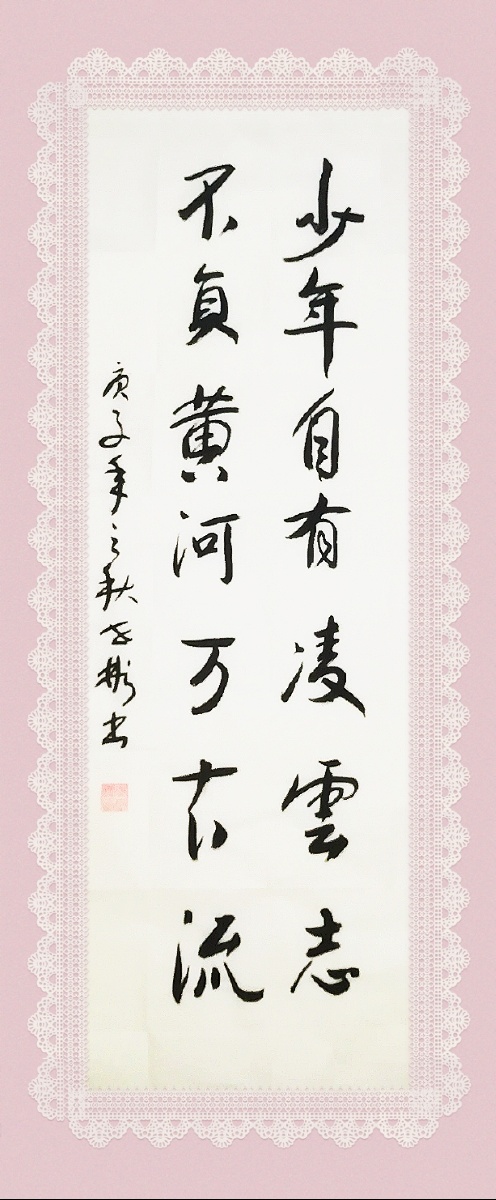 少年自有凌雲志
不負黄河万古流
庚子年之秋 彬书